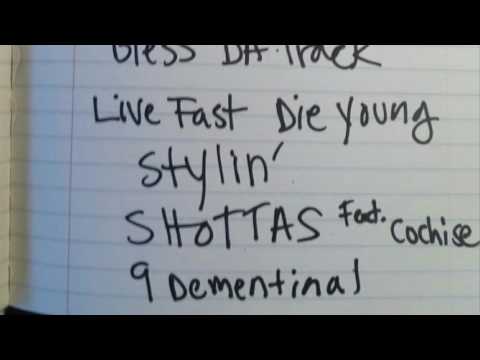 Bless DA Track
Live Fast Die Young
Stylin'
SHOTTAS Feat. Cochise
9 Dementinal